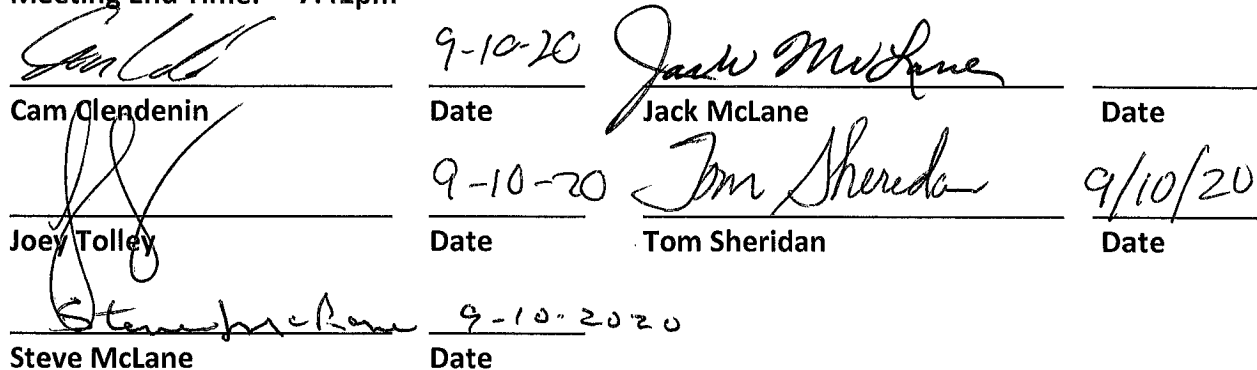 Meeting End Time: 7:41pm
9-10-20 Jack McLane
Cam Clendenin Date Jack McLane Date
9-10-20 Tom Sheridan 9/10/20
Joey Tolley Date Tom Sheridan Date
Steve McLane 9-10-2020
Steve McLane Date